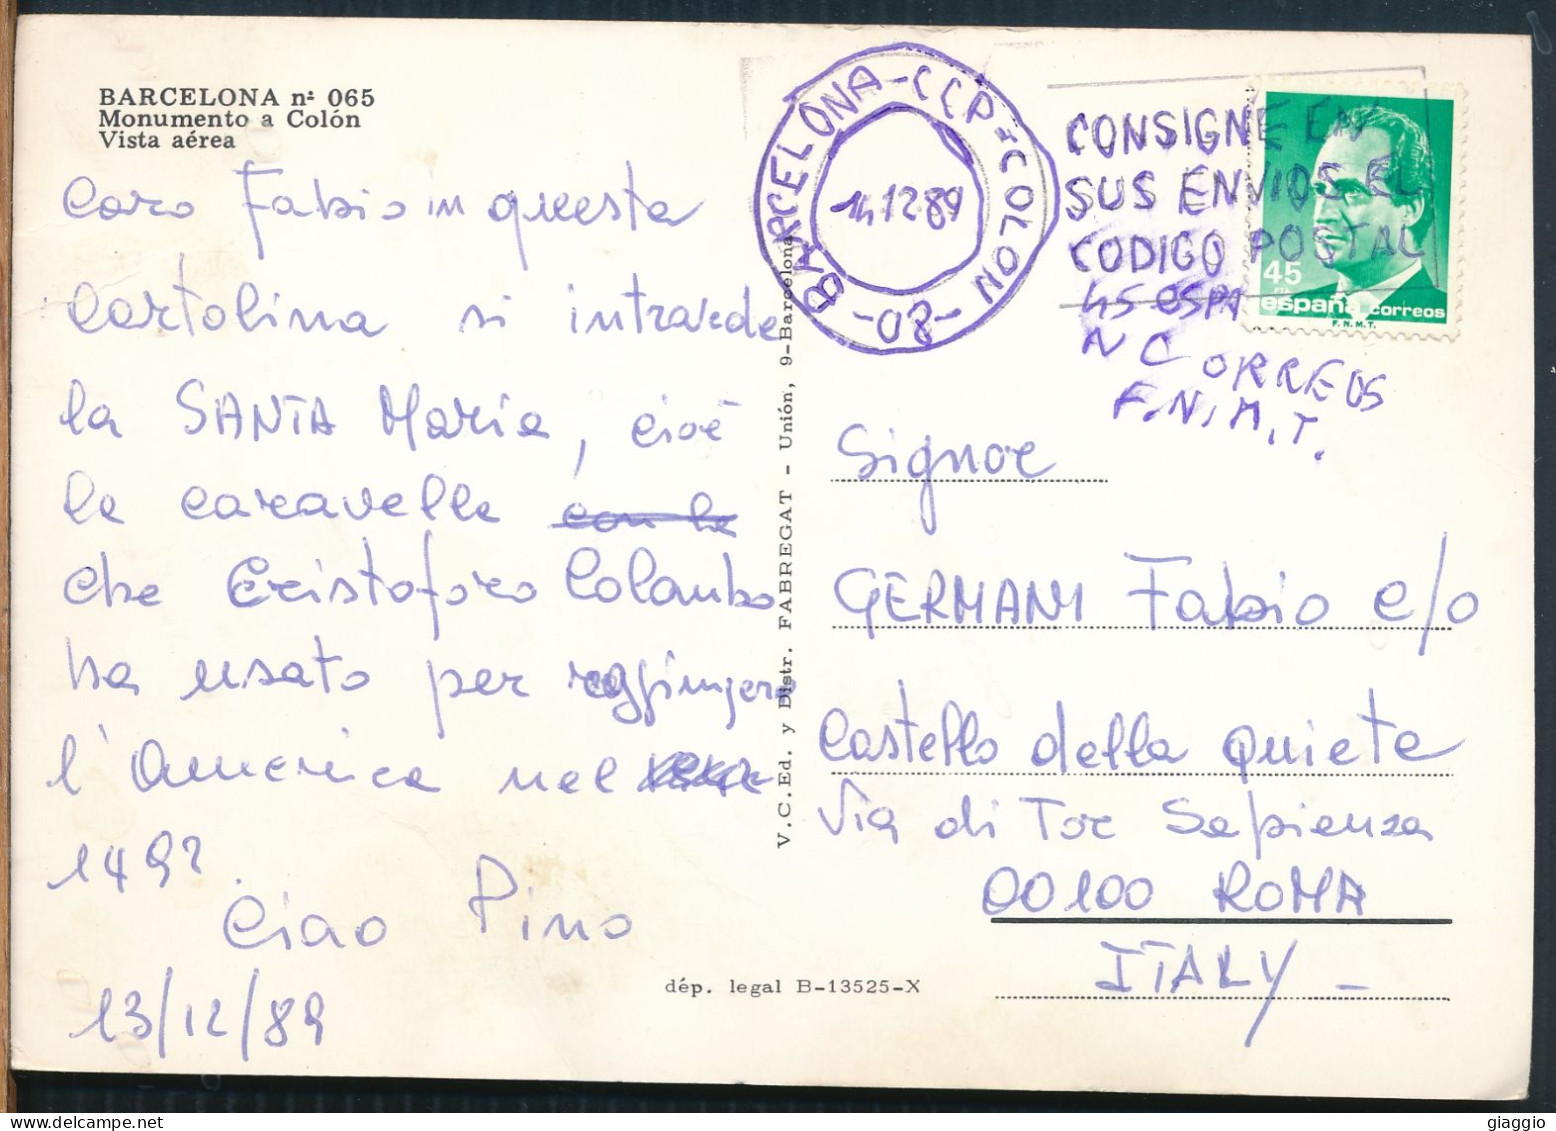 BARCELONA nº 065
Monumento a Colón
Vista aérea
Caro Fabio in questa
cartolina si intravede
la SANTA Maria, cioè
la caravella con la
che Cristoforo Colombo
ha usato per raggiungere
l'America nel
1492.
Ciao Pino
13/12/89
V.C. Ed. y Distr. FABREGAT - Unión, 9-Barcelona
dép. legal B-13525-X
BARCELONA-CCP-COLON-80-
14.12.89
CONSIGNE EN
SUS ENVIOS EL
CODIGO POSTAL
45 ESPA
N CORREOS
F.N.M.T.
45
PTA
españa correos
F.N.M.T.
Signor
GERMANI Fabio c/o
Castello della Quiete
Via di Tor Sapienza
00100 ROMA
ITALY -
giaggio